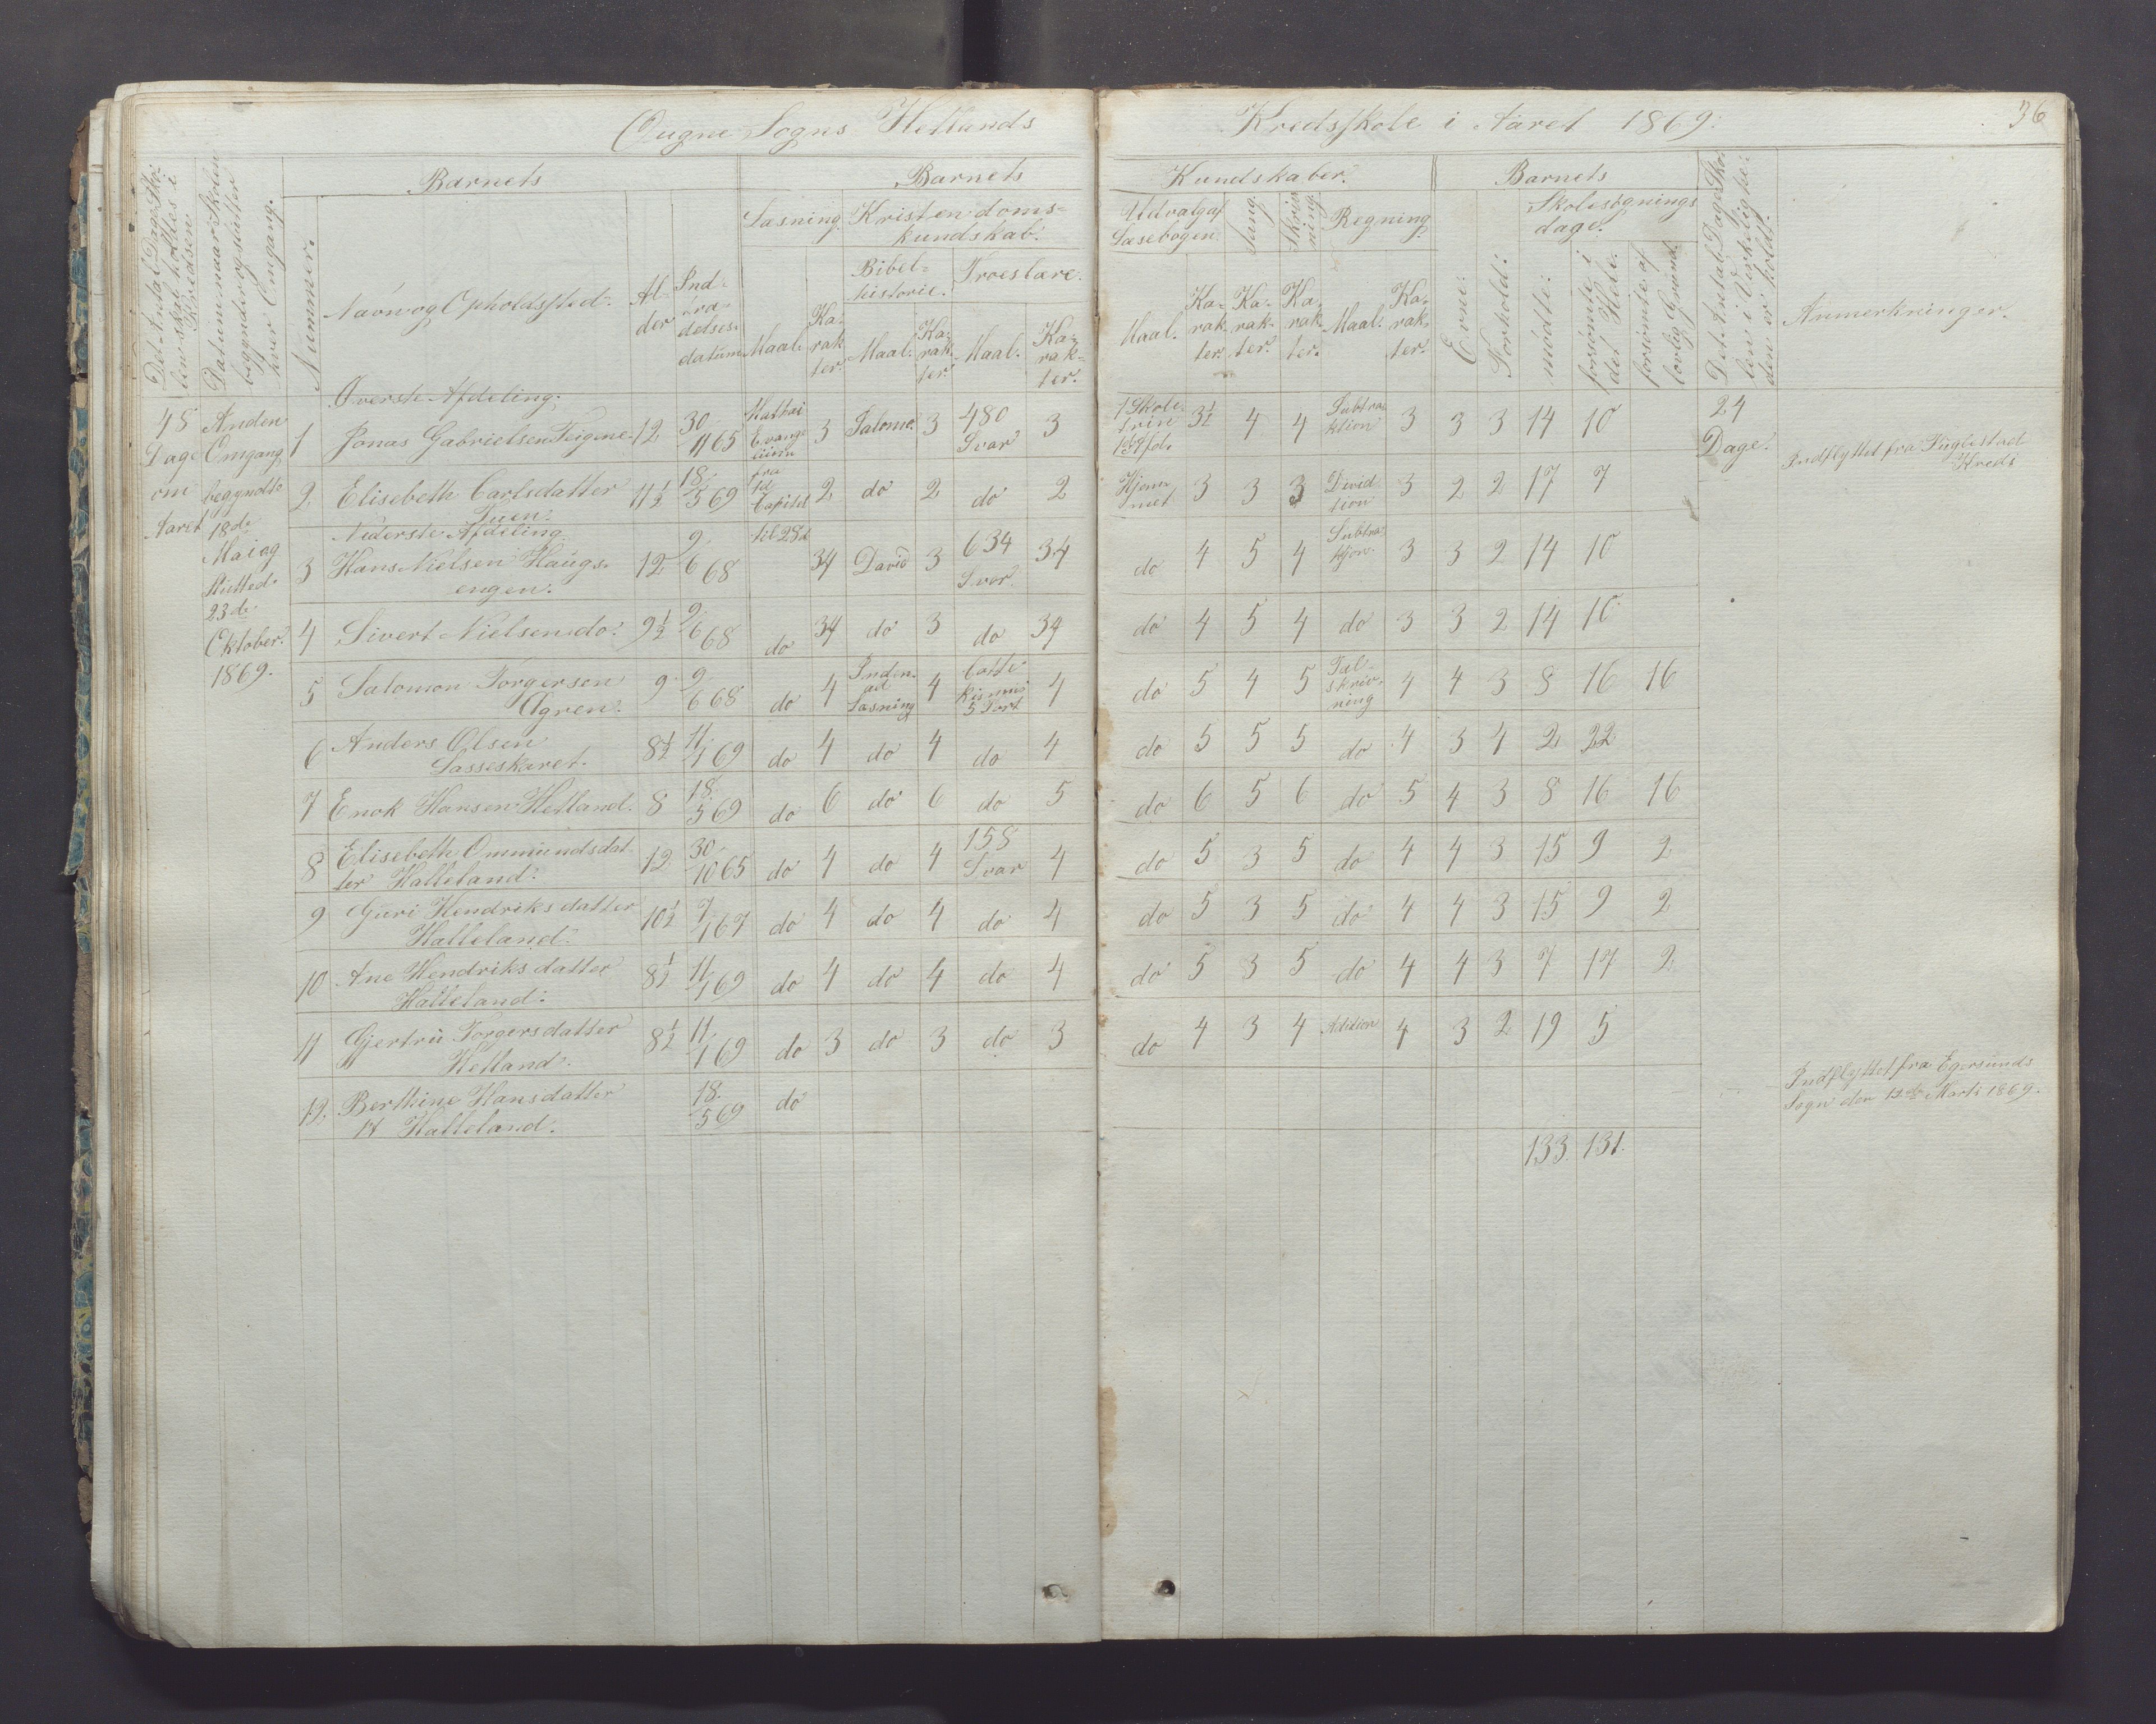 Ougne Sogns Hetlands Kredsskole i Aaret 1869. 36
Det Antal Dage Skolen skal holdes i Kredsen
Datum naar Skolen begynder og slutter hver Omgang.
Nummer.
Barnets
Navn og Opholdssted.
Alder.
Indtrædelsesdatum
Barnets Kundskaber.
Læsning. Kristendomskundskab.
Bibelhistorie. Troeslære.
Maal. Karakter. Maal. Karakter. Maal. Karakter.
Udvalg af Læsebogen. Sang. Skrivning. Regning.
Maal. Karakter. Karakter. Karakter. Maal. Karakter.
Barnets
Evne. Forhold. Skolesøgningsdage.
mødte. forsømte i det Hele. forsømte af lovlig Grund.
Det Antal Dage Skolen i Virkeligheden er holdt.
Anmerkninger.
48 Dage om Aaret
Anden Omgang begyndte 18de Mai og sluttede 23de Oktober. 1869.
Øverste Afdeling.
1 Jonas Gabrielsen Teigene 12 30/11 65 Mathæi Evangelium fra 1ste Capitel til 28de 3 Salomo. 3 480 Svar 3 1 Skoletrin 1ste Afd. 3½ 4 4 Subtraktion 3 3 3 14 10 24 Dage.
2 Elisebeth Carlsdatter Tuen. 11½ 18/5 69 2 do 2 do 2 Hjemmet 3 3 3 Divid tion 3 2 2 17 7 Indflyttet fra Fuglestad Kreds
Nederste Afdeling.
3 Hans Nielsen Haugsengen. 12 9/6 68 34 David 3 634 Svar. 34 do 4 5 4 Subtrakjon. 3 3 2 14 10
4 Sivert Nielsen do. 9½ 9/6 68 do 34 do 3 do 34 do 4 5 4 do 3 3 2 14 10
5 Salomon Torgersen Øgren. 9 9/6 68 do 4 Indenad Læsning 4 Cattekismus 5 Part 4 do 5 4 5 Talskrivning 4 4 3 8 16 16
6 Anders Olsen Sasseskaret. 8½ 11/1 69 do 4 do 4 do 4 do 5 5 5 do 4 3 4 2 22
7 Enok Hansen Hetland. 8 18/5 69 do 6 do 6 do 5 do 6 5 6 do 5 4 3 8 16 16
8 Elisebeth Ommundsdatter Halleland. 12 30/10 65 do 4 do 4 158 Svar 4 do 5 3 5 do 4 4 3 15 9 2
9 Guri Hendriksdatter Halleland. 10½ 7/1 67 do 4 do 4 do 4 do 5 3 5 do 4 4 3 15 9 2
10 Ane Hendriksdatter Halleland. 8½ 11/1 69 do 4 do 4 do 4 do 5 3 5 do 4 4 3 7 17 2
11 Gjertru Torgersdatter Hetland. 8½ 11/1 69 do 3 do 3 do 3 do 4 3 4 Adition 4 3 2 19 5
12 Berthine Hansdatter Halleland. 18/5 69 do Indflyttet fra Egersunds Sogn den 12te Marts 1869.
133. 131.